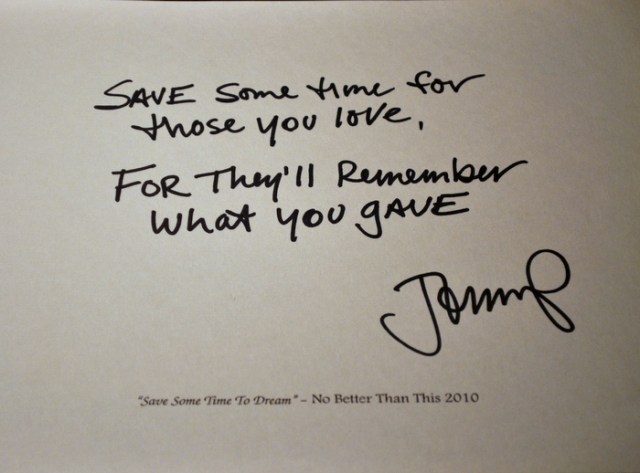 SAVE Some time for
those you love,
FOR They'll Remember
What you gAVE
"Save Some Time To Dream" – No Better Than This 2010